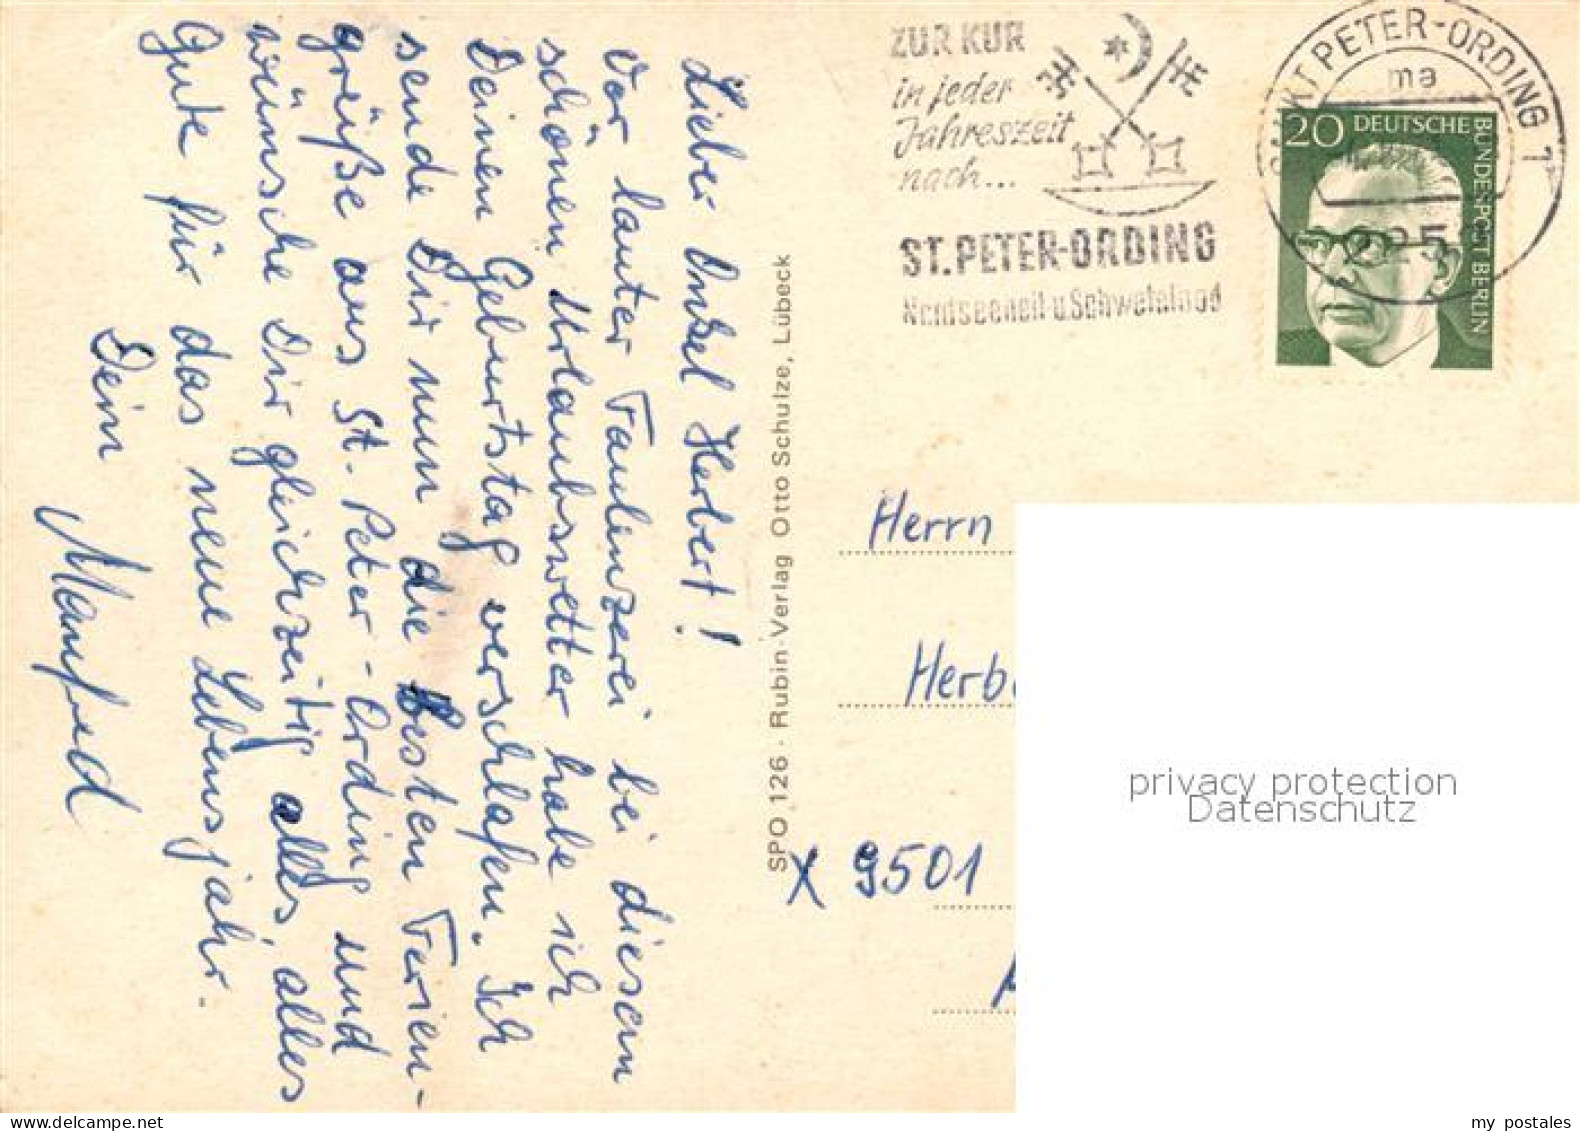 Lieber Onkel Herbert!
Vor lauter Faulenzerei bei diesem
schönen Urlaubswetter habe ich
Deinen Geburtstag verschlafen. Ich
sende Dir nun die besten Ferien-
grüße aus St. Peter-Ording und
wünsche Dir gleichzeitig alles, alles
Gute für das neue Lebensjahr.
Dein
Manfred
SPO 126 · Rubin-Verlag Otto Schulze, Lübeck
ZUR KUR
in jeder
Jahreszeit
nach...
ST. PETER-ORDING
Nordseeheil-u. Schwefelbad
SANKT PETER-ORDING 1
ma
2252
20 DEUTSCHE
BUNDESPOST BERLIN
Herrn
Herbe
X 9501
privacy protection
Datenschutz
my postales